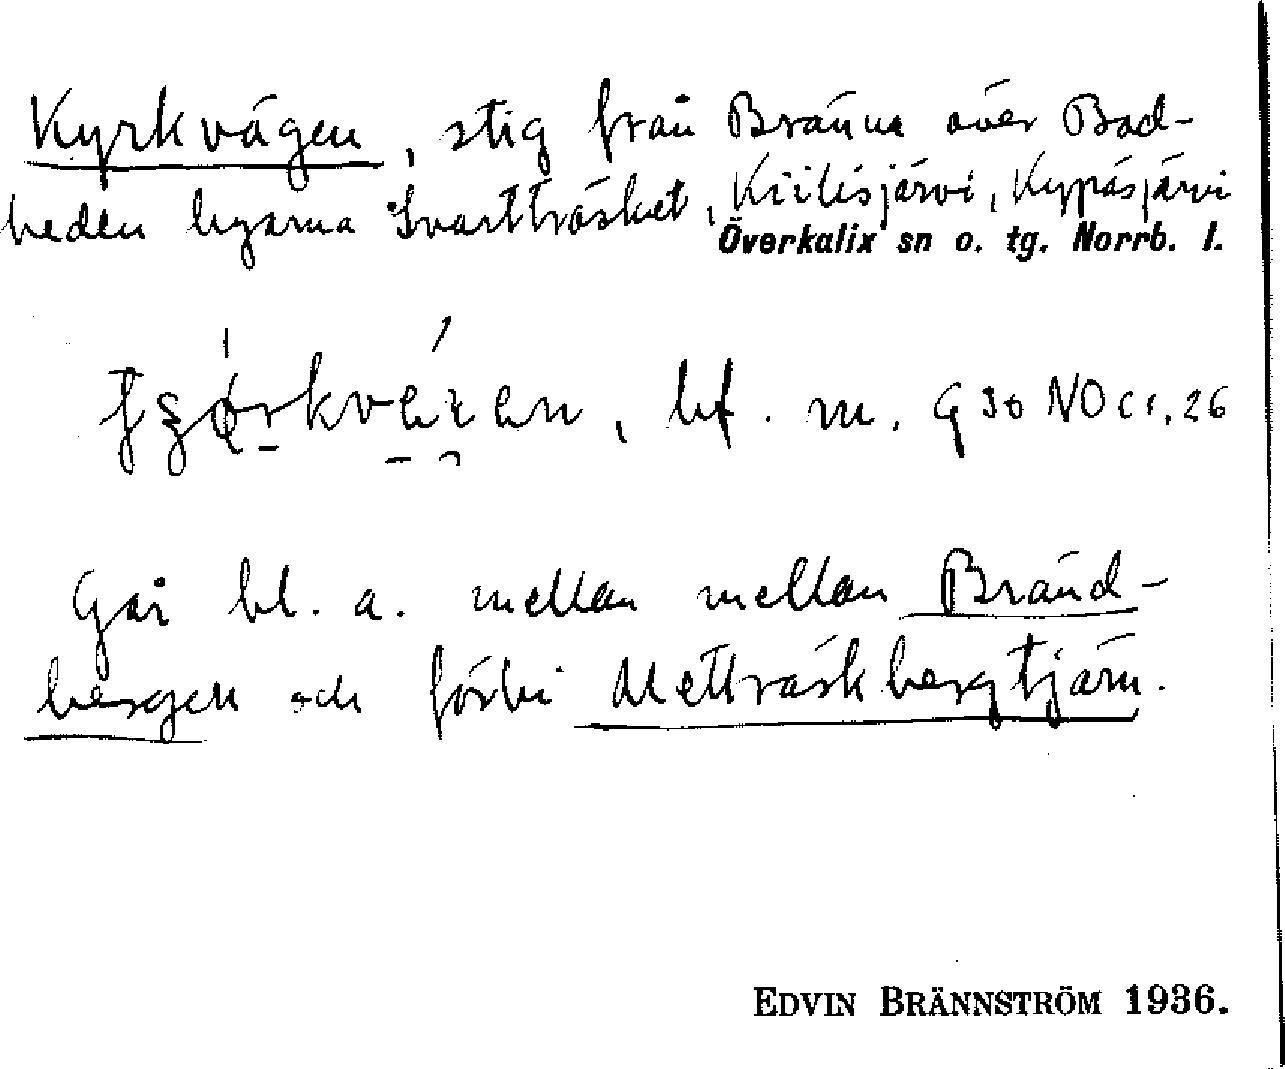 Kyrkvägen, stig från Bränna över Bad-
heden byarna Svartträsket, Kiilisjärvi, Kypäsjärvi
Överkalix sn o. tg. Norrb. l.
bf. m. G 30 NO cr, 26
Går bl. a. mellan mellan Bränd-
bergen och förbi Metträskbergtjärn.
EDVIN BRÄNNSTRÖM 1936.